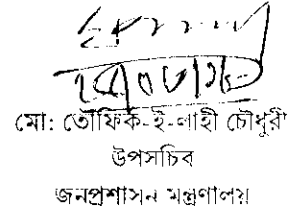 মো: তৌফিক-ই-লাহী চৌধুরী
উপসচিব
জনপ্রশাসন মন্ত্রণালয়